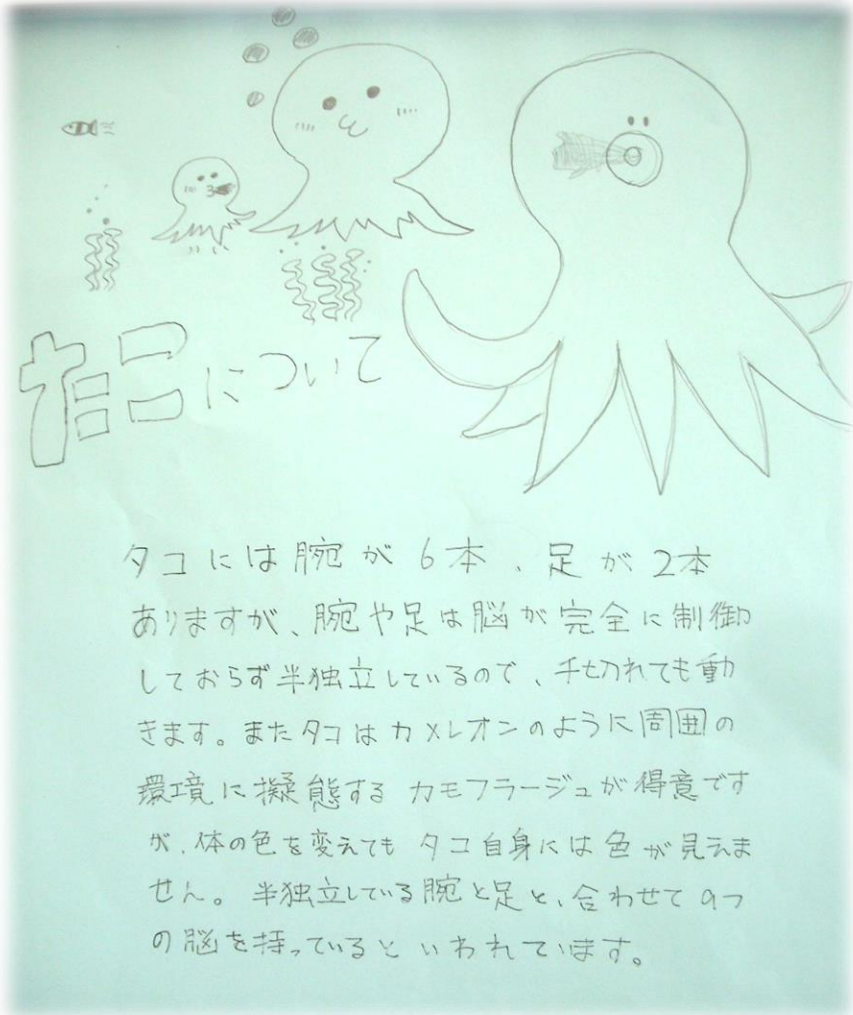 たこについて
タコには腕が6本、足が2本
ありますが、腕や足は脳が完全に制御
しておらず半独立しているので、千切れても動
きます。またタコはカメレオンのように周囲の
環境に擬態するカモフラージュが得意です
が、体の色を変えてもタコ自身には色が見えま
せん。半独立している腕と足と、合わせて9つ
の脳を持っているといわれています。